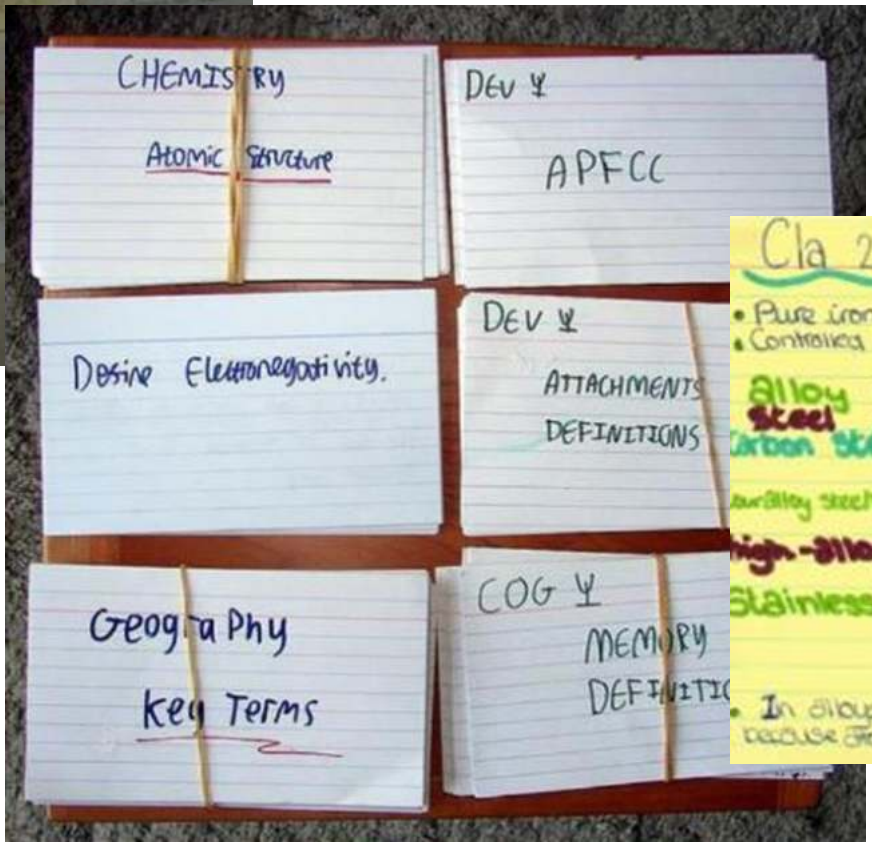 CHEMISTRY
Atomic Structure
DEV Ψ
APFCC
Define Electronegativity.
DEV Ψ
ATTACHMENTS
DEFINITIONS
Geography
Key Terms
COG Ψ
MEMORY
DEFINITIO
C1a 2
• Pure iron
• Controlled
alloy
steel
Carbon Ste
alloy steel
high-allo
Stainless
• In alloy
because